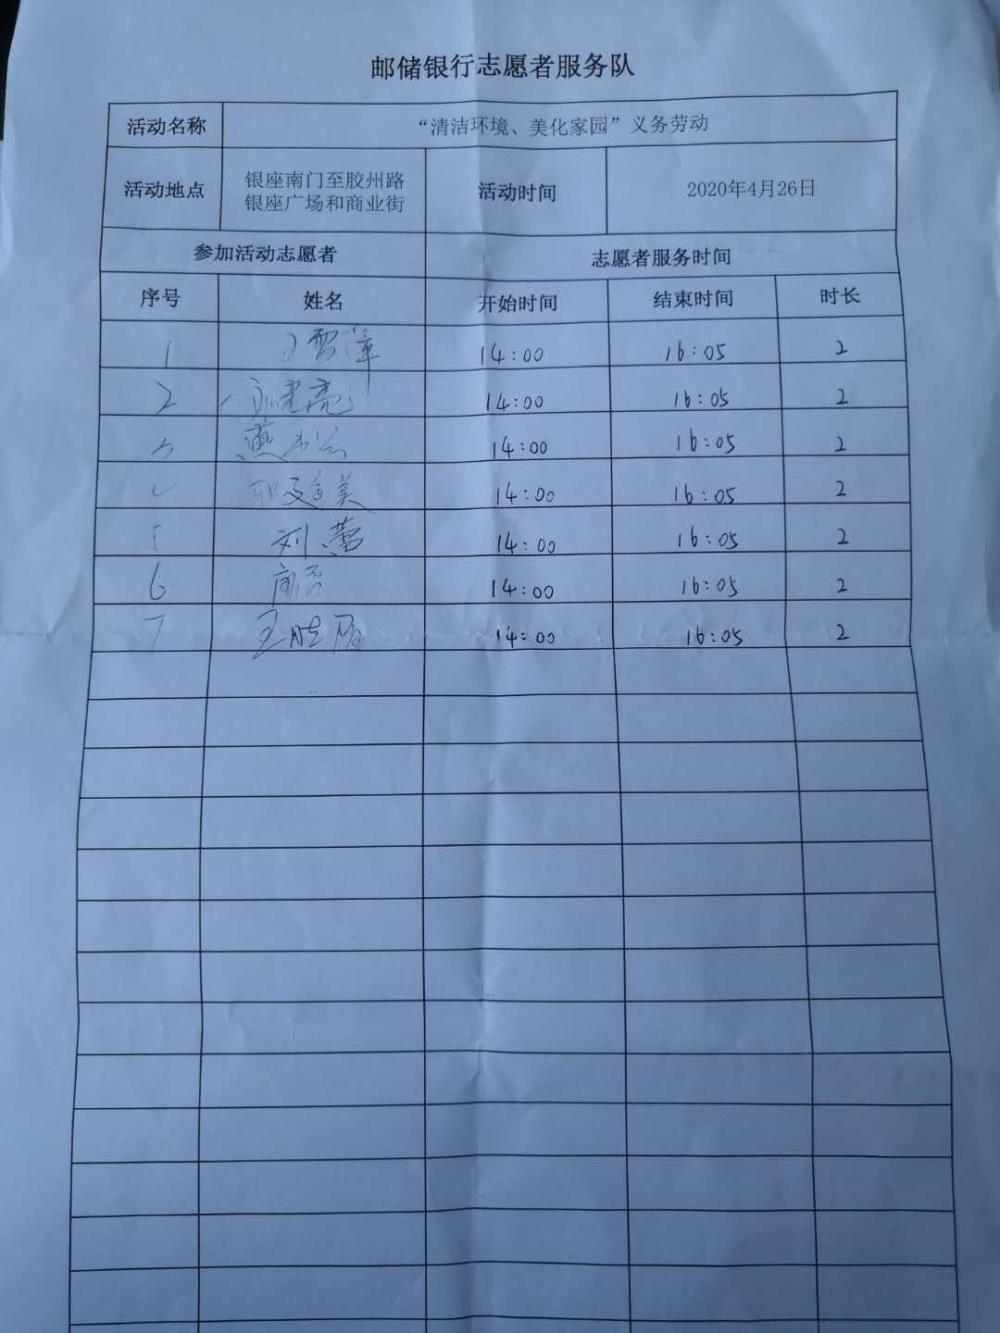 邮储银行志愿者服务队
活动名称 “清洁环境、美化家园”义务劳动
活动地点 银座南门至胶州路 银座广场和商业街 活动时间 2020年4月26日
参加活动志愿者 志愿者服务时间
序号 姓名 开始时间 结束时间 时长
1 14:00 16:05 2
2 14:00 16:05 2
14:00 16:05 2
14:00 16:05 2
刘蕾 14:00 16:05 2
6 14:00 16:05 2
7 14:00 16:05 2